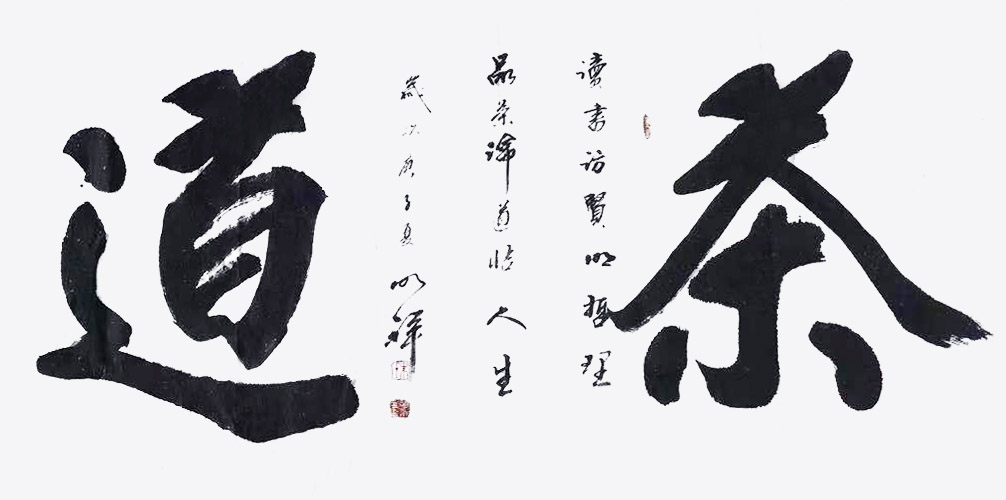 茶
讀書訪賢明哲理
品茶論道悟人生
歲次庚子夏 明祥
道